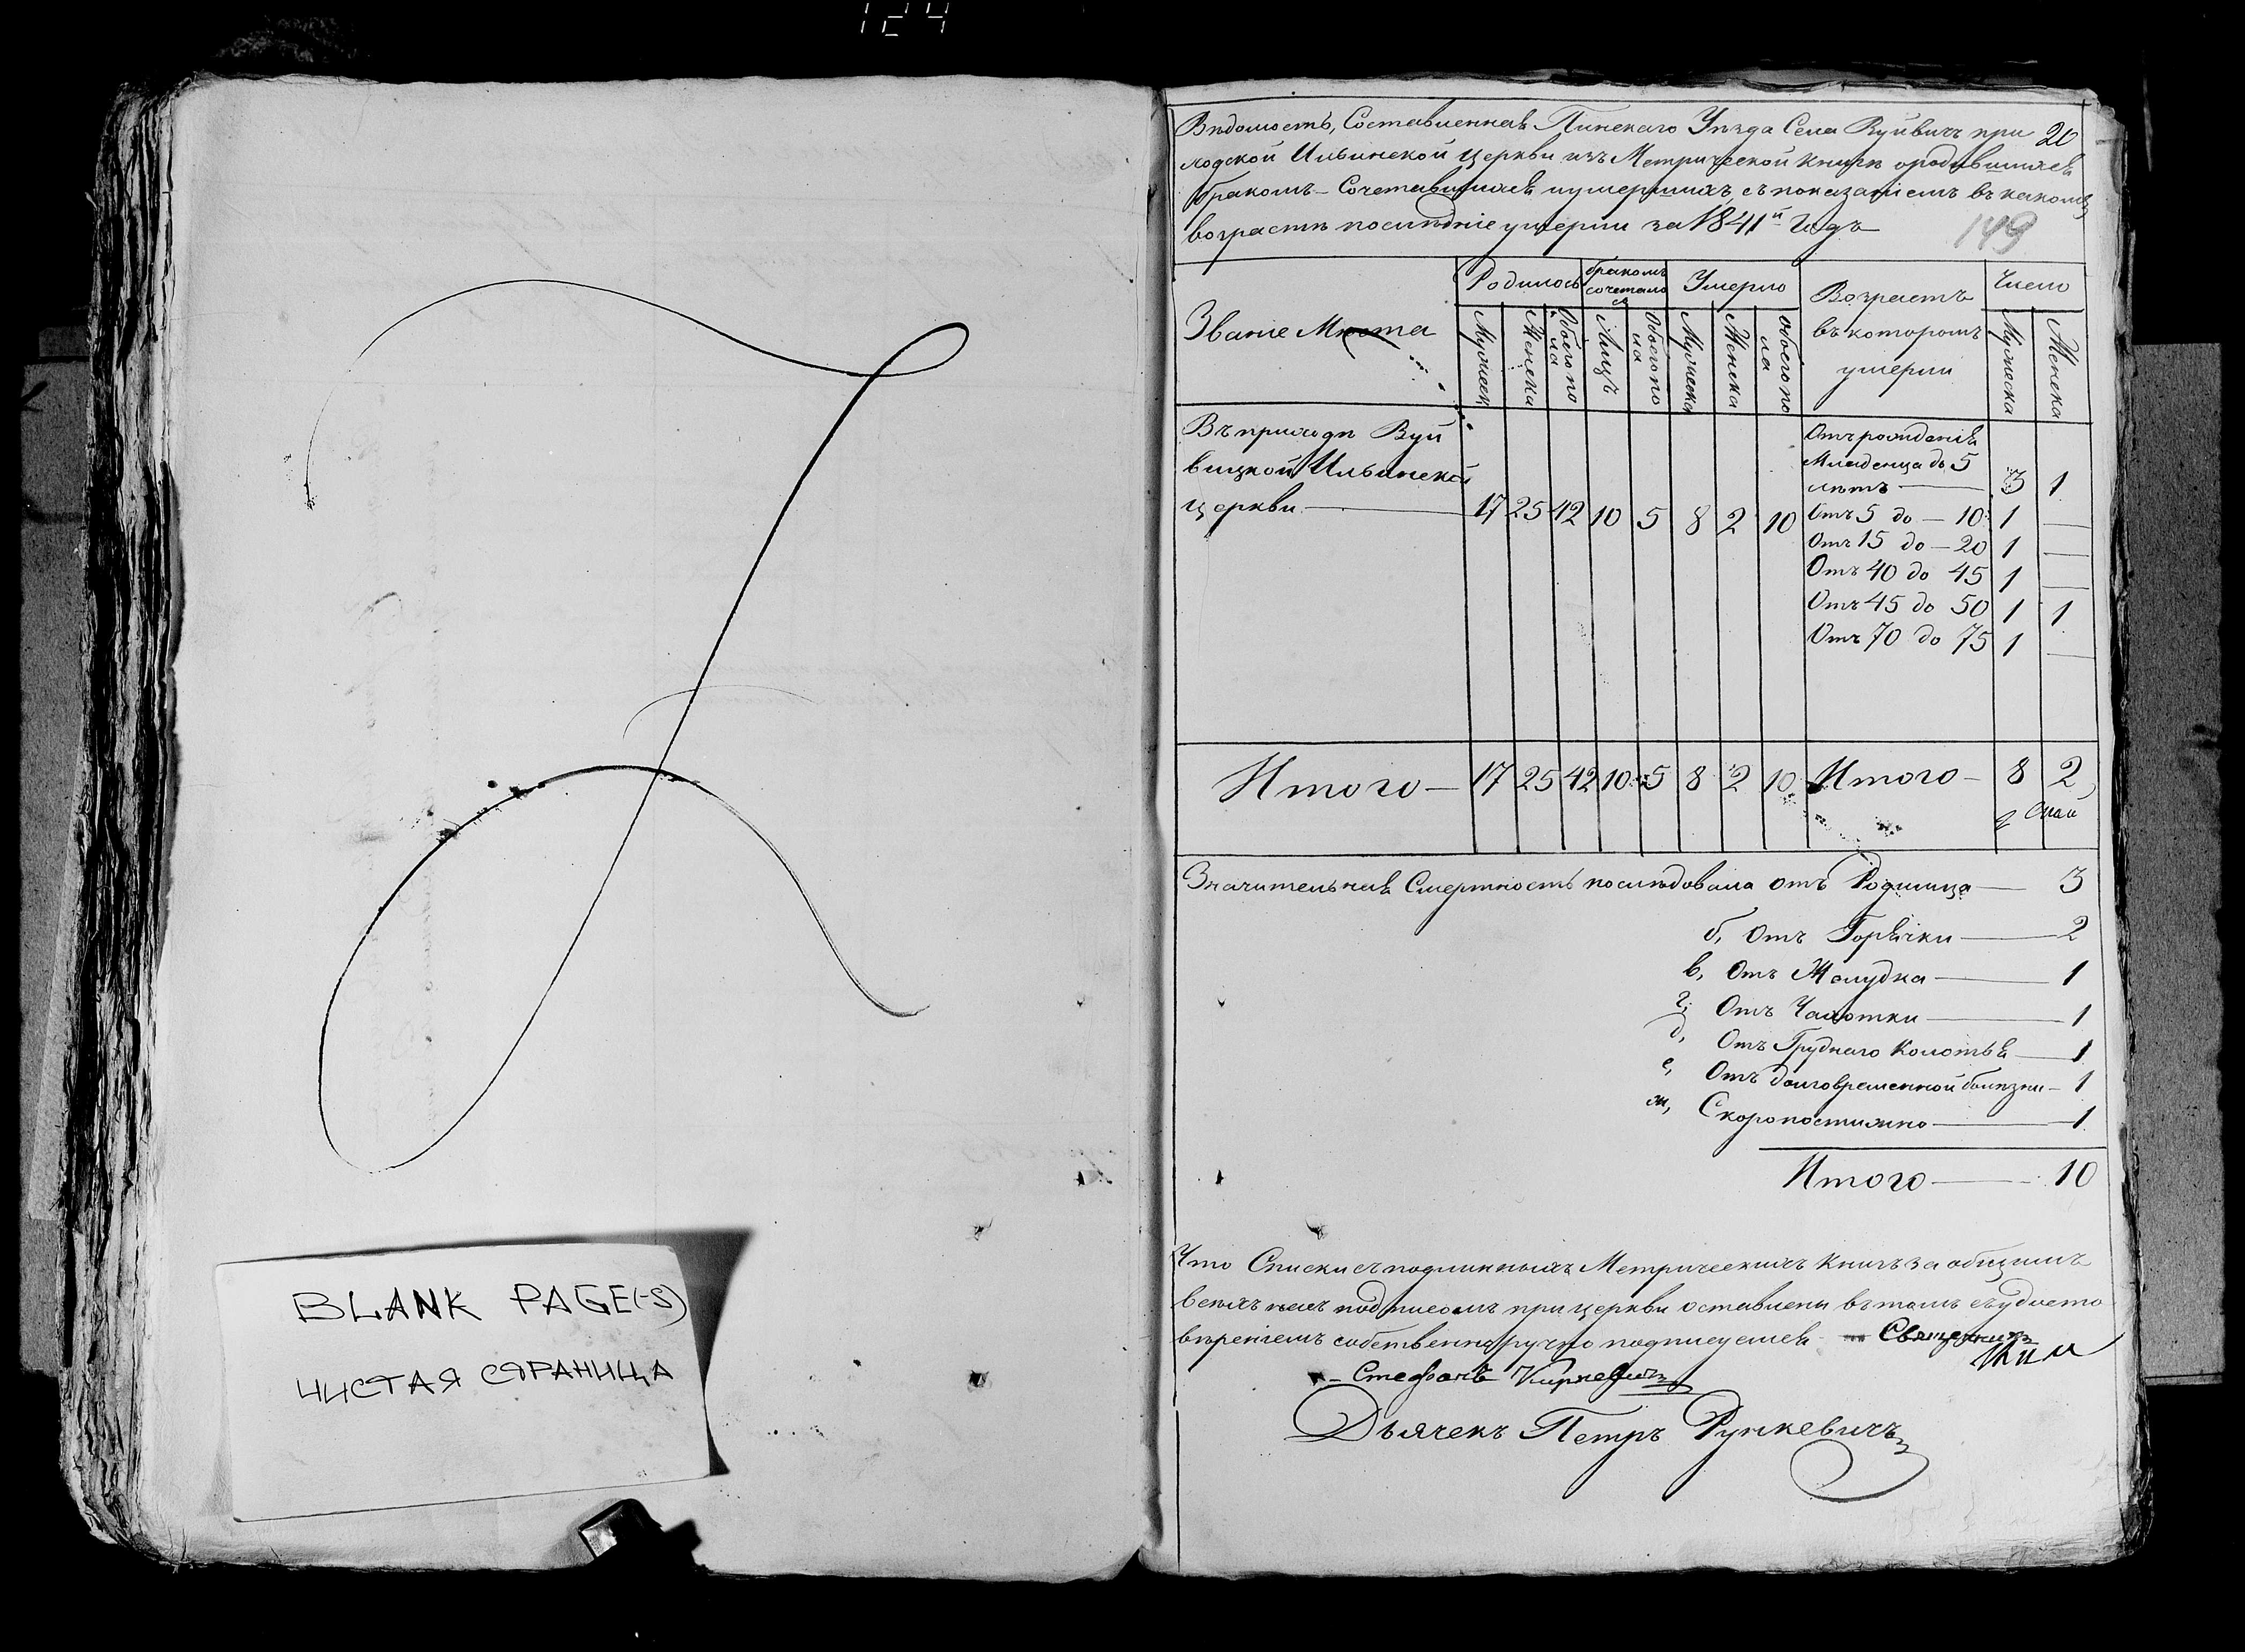 124
BLANK PAGE(-S)
ЧИСТАЯ СТРАНИЦА
Вѣдомость, Составленная Пинскаго Уѣзда Села Вуйвичъ при 20
ходской Ильинской Церкви изъ Метрической книги ородившихся
бракомъ Сочетавшихся иумершихъ, съ показаніемъ въ какомъ
возрастѣ послѣдніе умерли за 1841й Годъ
149
Званіе Мѣста
Родилось
бракомъ сочеталось
Умерло
Возрастъ въ которомъ умерли
Число
Мужеск
Женска
Обоего пола
Лицъ
Обоего пола
Мужеска
Женска
обоего пола
Мужеска
Женска
Въ приходѣ Вуй
вицкой Ильинской
церкви 17 25 42 10 5 8 2 10
Отъ рожденія
Младенца до 5
лѣтъ 3 1
Отъ 5 до 10 1 —
Отъ 15 до 20 1 —
Отъ 40 до 45 1 —
Отъ 45 до 50 1 1
Отъ 70 до 75 1 —
Итого 17 25 42 10 5 8 2 10 Итого 8 2
Значительная Смертность послѣдовала отъ Родимца 3
б, Отъ Горячки 2
в, Отъ Желудка 1
г, Отъ Чахотки 1
д, Отъ Груднаго Колотья 1
е, Отъ долговременной болѣзни 1
ж, Скоропостижно 1
Итого 10
Что Списки съ подлинныхъ Метрическихъ Книгъ за общимъ
всѣхъ насъ подписомъ при церкви оставлены въ томъ съ удосто
вѣреніемъ собственноручно подписуемся Священникъ
Стефанъ Киркевичъ
Дьячекъ Петръ Рункевичъ